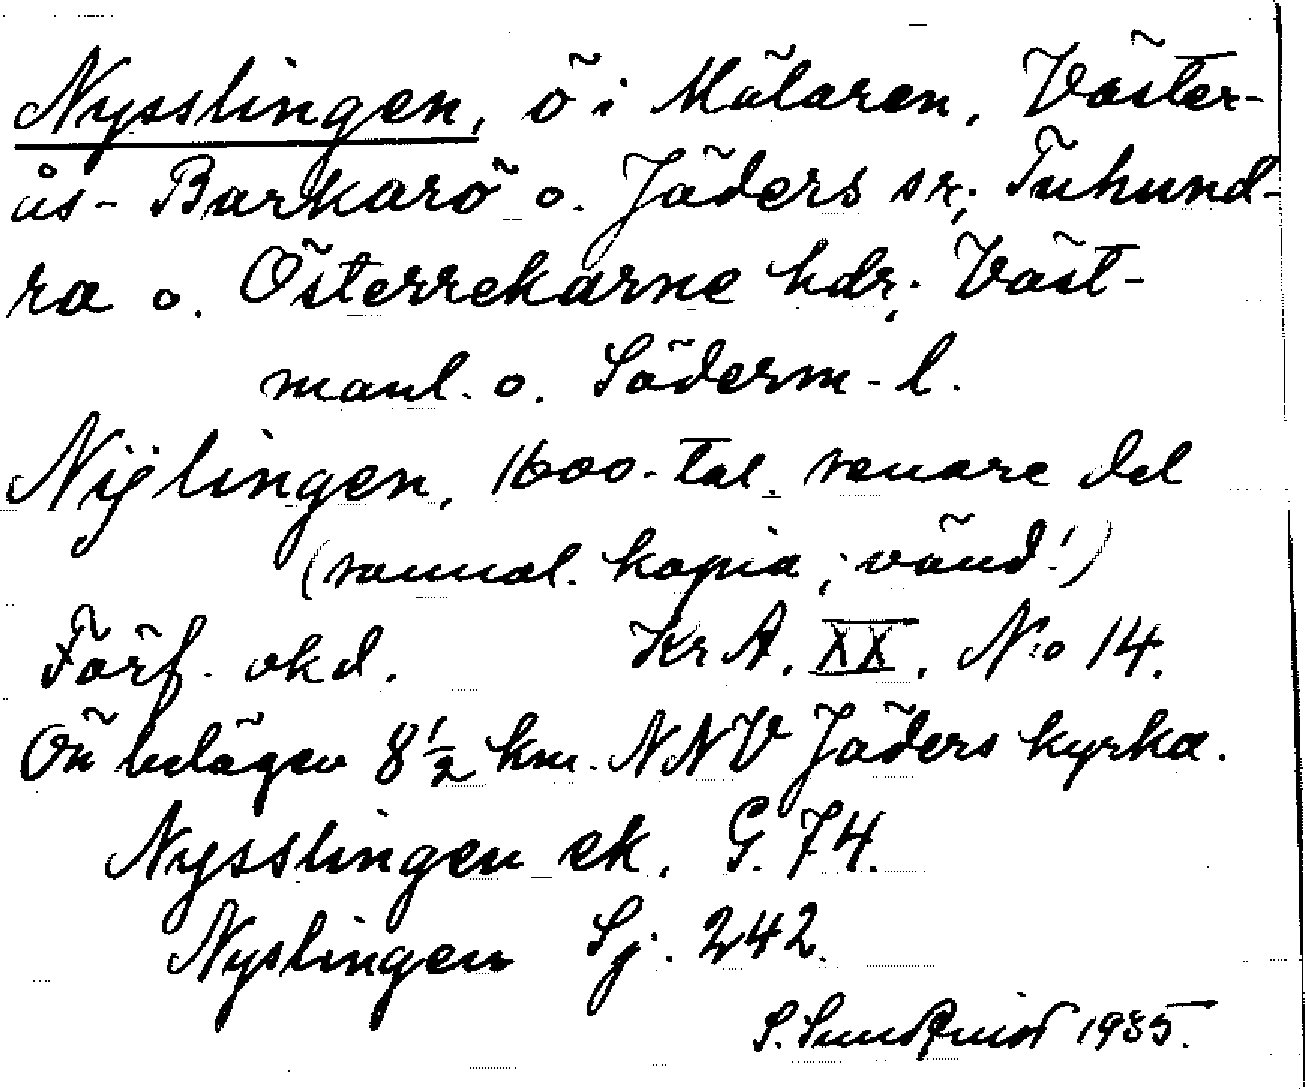 Nysslingen, ö i Mälaren, Väster-
ås-Barkarö o. Jäders sr; Tuhund-
ra o. Österrekarne hdr; Väst-
manl. o. Söderm-l.
Nÿlingen, 1600-tal. senare del
(samma. kopia; vänd!)
Förf. okd. Kr A. XX. No 14.
Ön belägen 8 1/2 km. NNV Jäders kyrka.
Nysslingen ek. G. 74.
Nyslingen Sj. 242.
S. Sundquist 1935.